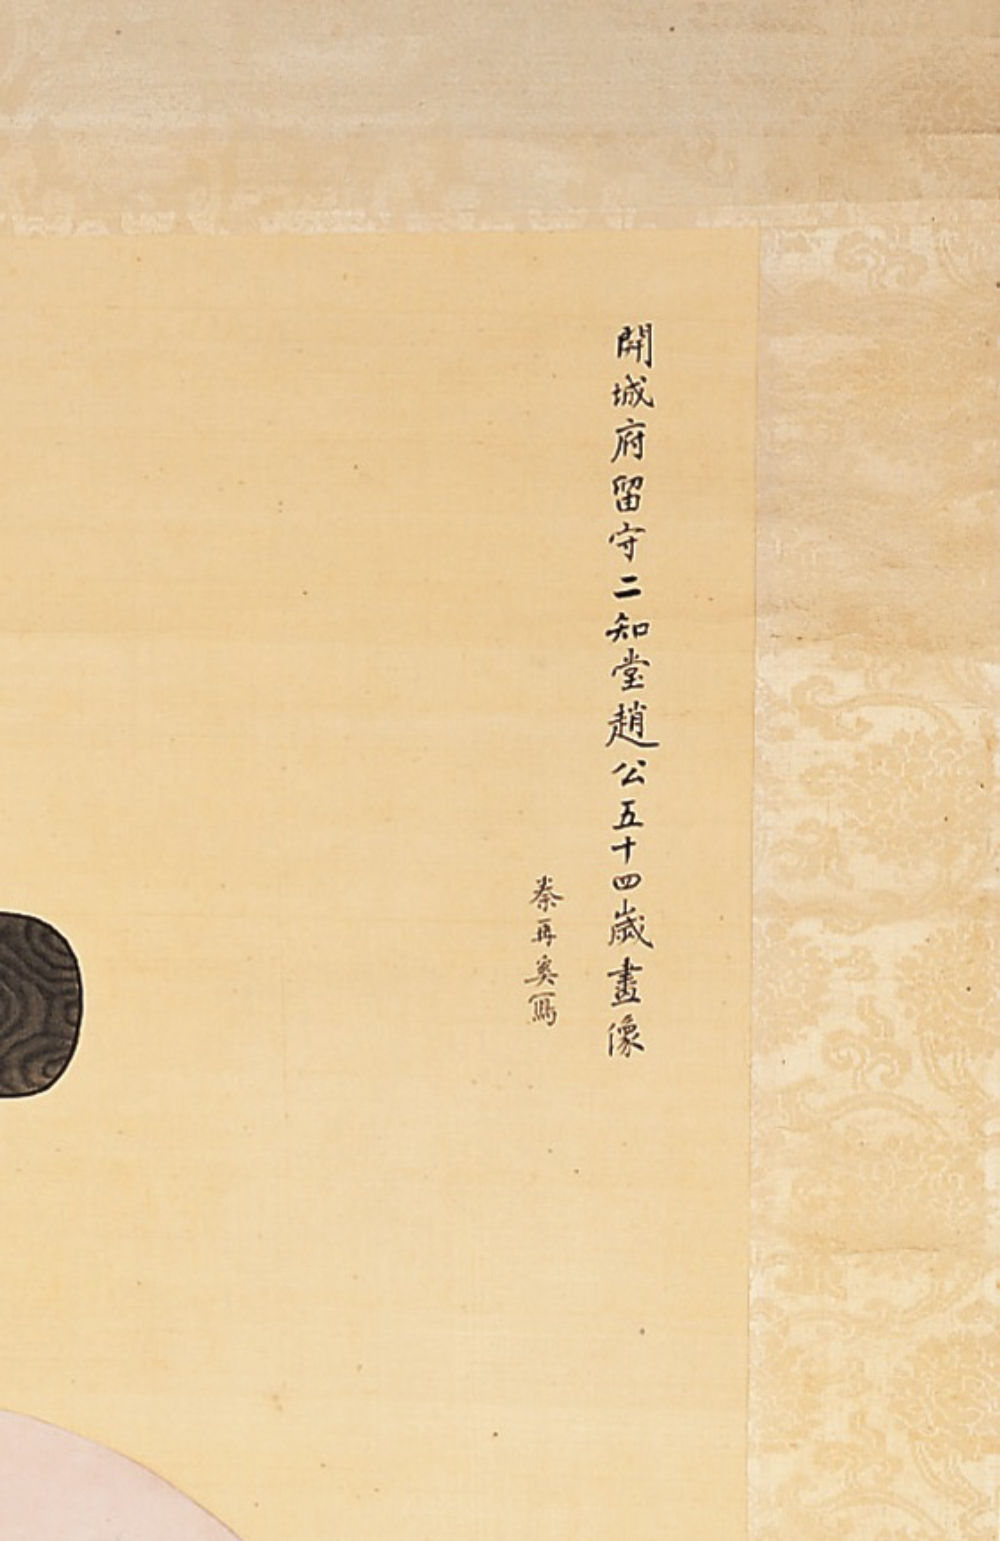 開城府留守二知堂趙公五十四歲畫像
秦再奚寫